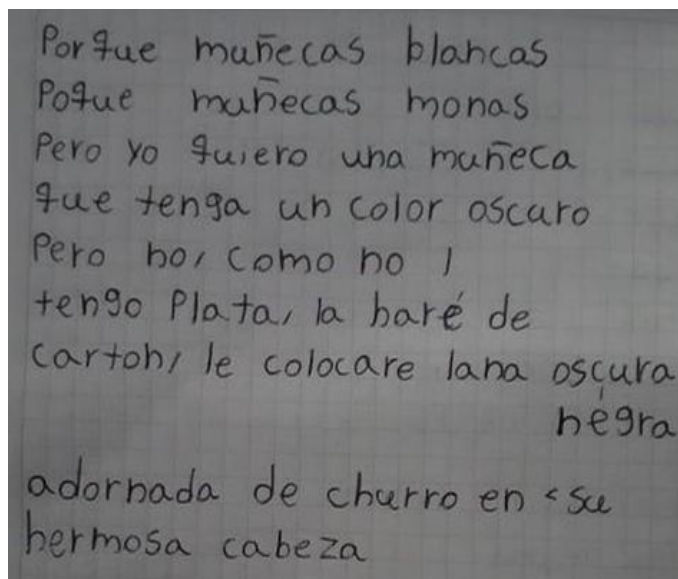 Porque muñecas blancas
Poque muñecas monas
Pero yo quiero una muñeca
que tenga un color oscuro
Pero no, como no
tengo Plata, la haré de
carton, le colocare lana oscura
negra
adornada de churro en su
hermosa cabeza